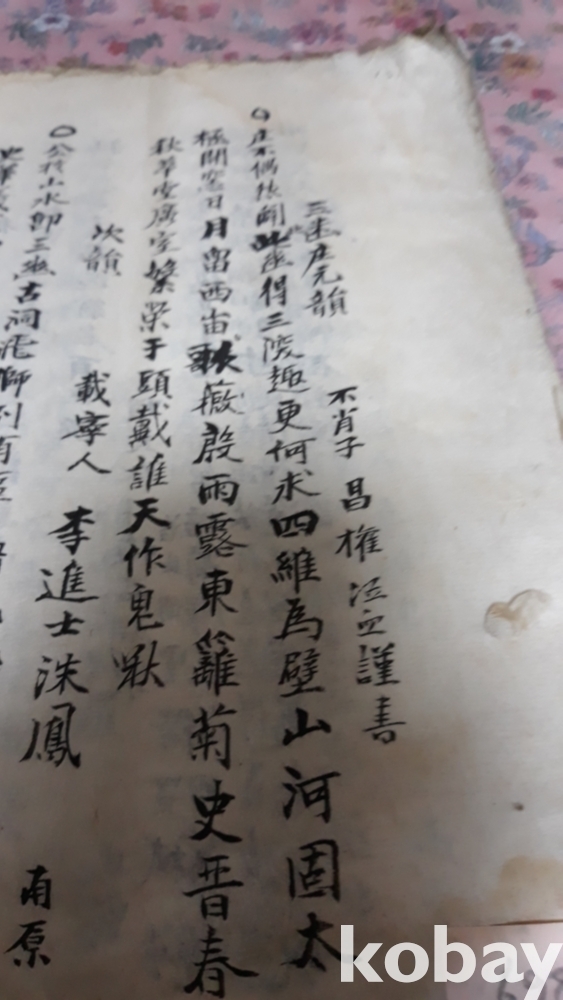 三幽庄元韻 不肖子 昌權 泣血謹書
○庄不偶然開此幽得三陵趣更何求四維為壁山河固太
極開窓日月留西宙歌薇殷雨露東籬菊史晋春
秋草堂廣室繁榮于頭戴誰天作鬼啾
次韻 載寧人 李進士洙鳳 南原
○公於山水卽三幽古洞
kobay